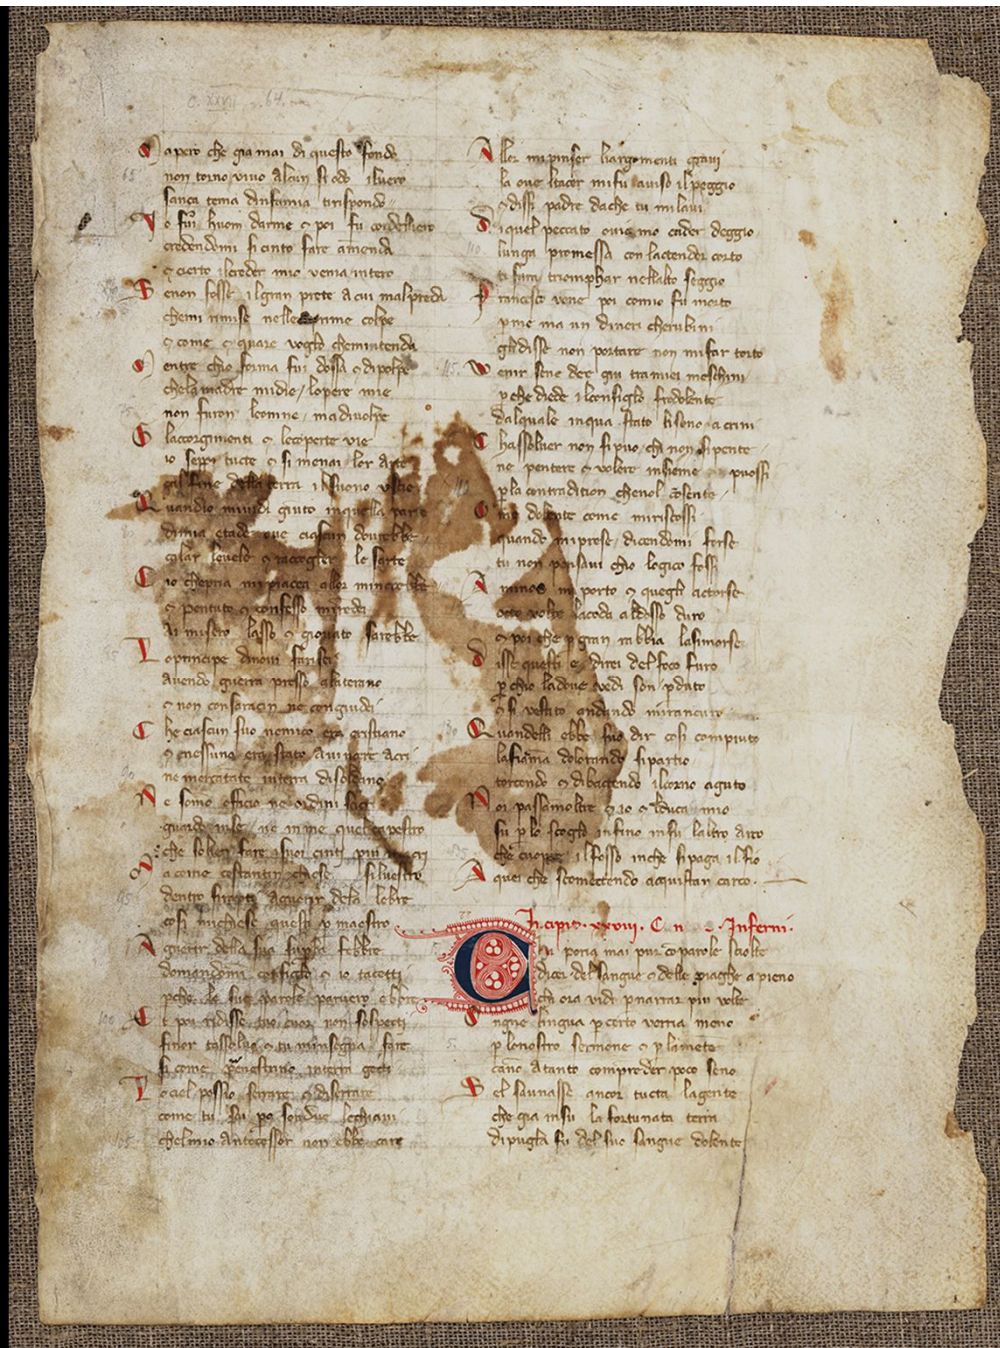 C. XXVII 64.
Ma pero che gia mai di questo fondo
non torno vivo Alcun si odo iluero
sanza tema dinfamia tirispondo
Io fui huom darme et poi fu cordelliero
credendomi si cinto fare amenda
et cierto ilcreder mio venia intero
Se non fosse ilgran prete A cui mal preda
chemi rimise nelle prime colpe
et come et quare voglo chemintenda
Mentre chio forma fui dossa et dipolpe
chelamadre midie lopere mie
non furon leonine madiuolpe
Glaccorgimenti et lecoperte vie
io seppi tucte et si menai lor Arte
chal fine della terra ilsuono uscie
Quando mividi giuto inquella parte
dimia etade oue ciascun dourebbe
calar leuele et raccoglier le sarte
Cio chepria mi piacea allor mincrebbe
et pentuto et confesso mirendei
Ai misero lasso et giouato sarebbe
Loprincipe dinoui farisei
Auendo guerra presso alaterano
et non consaracin ne congiudei
Che ciascun suo nemico era cristiano
et nessuno era stato A vincere Acri
ne mercatate interra disoldano
Ne somo officio ne ordini sacri
guardo inse ne in me quel capestro
che solea fare isuoi cinti piu macri
Ma come costantin chiese siluestro
dentro siratti Aguerir dela lebre
cosi michiese questi p maestro
Aguerir della sua supba febbre
domandomi consiglo et io tacetti
pche le sue parole paruero ebbre
E poi ridisse tuo cuor non sospecti
finor tassoluo et tu minsegna fare
si come penestrino interra gecti
Lo ciel possio serrare et diserrare
come tu sai po son due lechiaui
chelmio Antecessor non ebbe care
Allor mi pinser liargomenti graui
la oue ltacer mi fu auiso il peggio
et dissi padre da che tu milaui
Di quel peccato ouio mo cader deggio
lunga promessa con lactender corto
ti fara triomphar nellalto seggio
Francesco vene poi comio fu morto
p me ma un dineri cherubini
gli disse non portare non mi far torto
Venir sene dee giu tra miei meschini
p che diede ilconsiglo frodolente
dalquale inqua stato liseno a crini
Chassoluer non si puo chi non sipente
ne pentere et volere insieme puossi
p la contradition chenol cosente
O me dolente come miriscossi
quando miprese dicendomi forse
tu non pensaui chio loyco fossi
A minos mi porto et quegli actorse
octo volte lacoda aldosso duro
et poi che p gran rabbia lasimorse
Disse questi e direi del foco furo
p chio ladoue vedi son pduto
et si vestito andando mirancuro
Quandelli ebbe suo dir cosi compiuto
lafiama dolorando sipartio
torcendo et dibattendo ilcorno aguto
Noi passamoltre et io elduca mio
su p lo scoglo infino insu laltro arco
che cuopre ilfosso inche sipaga ilfio
A quei che scomectendo acquistan carco
Incipit xxviij. C Inferni
Chi poria mai pur coparole sciolte
dicer del sangue et delle piaghe a pieno
chi ora vidi p narrar piu volte
Ongne lingua p certo verria meno
p lo nostro sermone et p lamente
cano Atanto comprender poco seno
Sel saunasse ancor tucta lagente
che gia insu la fortunata terra
dipuglia fu del suo sangue dolente